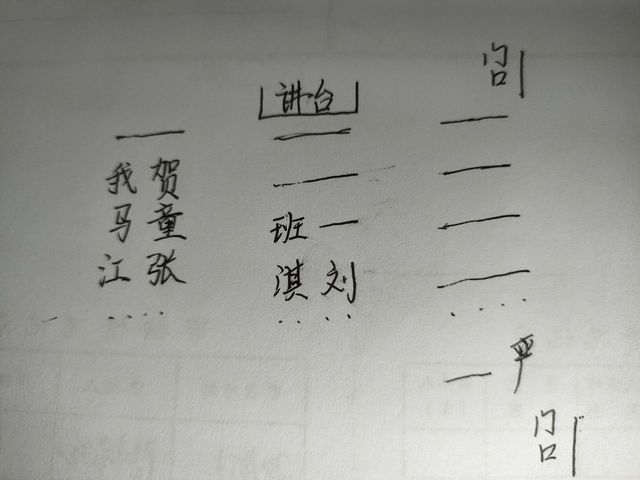 门口
讲台
我 贺
马 童 班 一
江 张 淇 刘
.... .... ....
一 严
门口